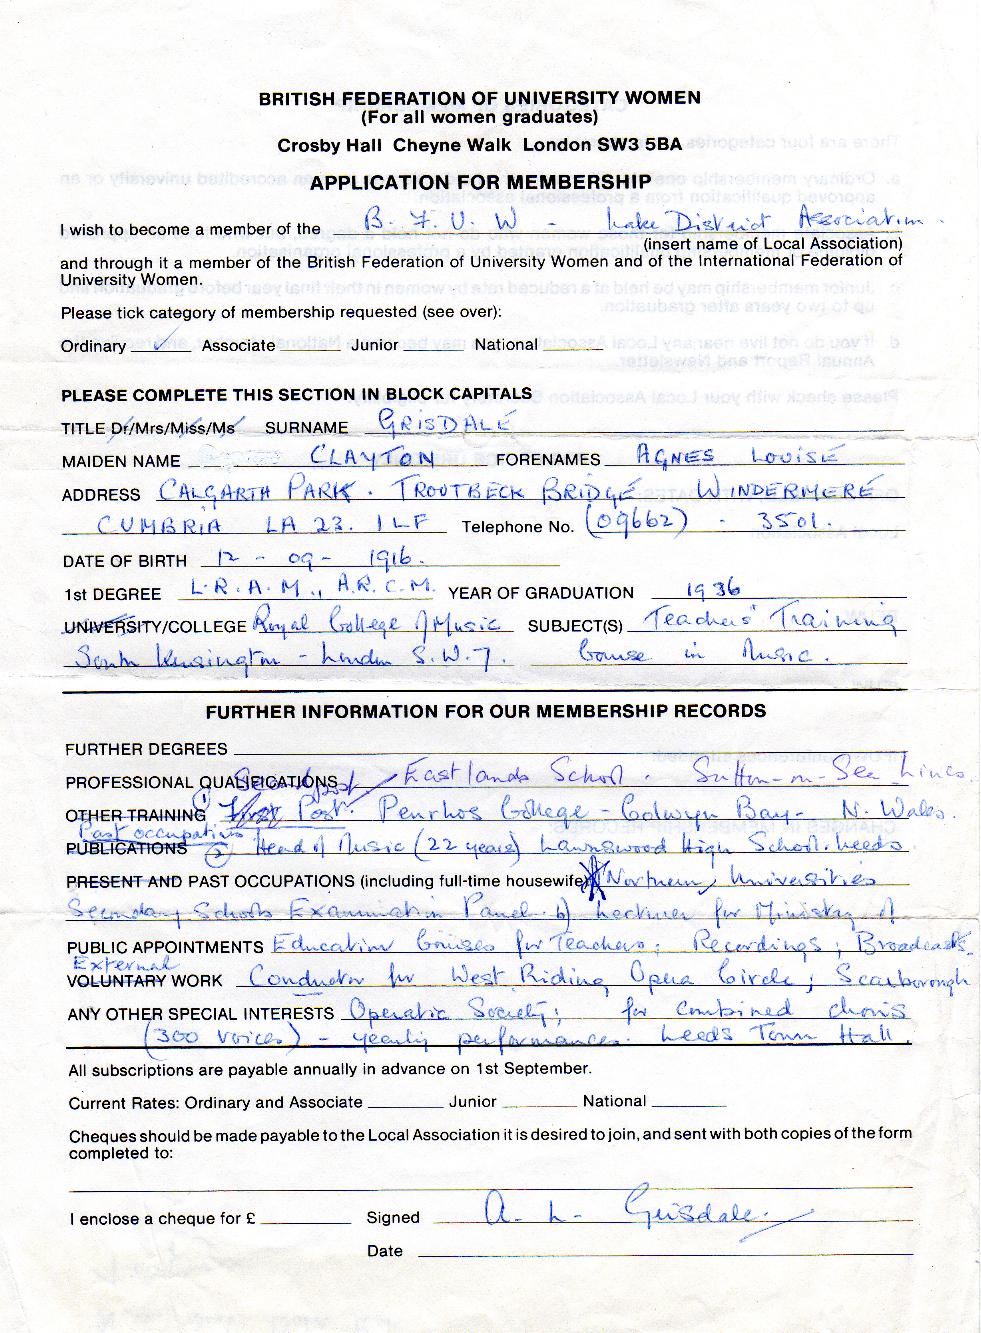 BRITISH FEDERATION OF UNIVERSITY WOMEN
(For all women graduates)
Crosby Hall Cheyne Walk London SW3 5BA
APPLICATION FOR MEMBERSHIP
I wish to become a member of the B. F. U. W - Lake District Association.
(insert name of Local Association)
and through it a member of the British Federation of University Women and of the International Federation of
University Women.
Please tick category of membership requested (see over):
Ordinary ✓ Associate Junior National
PLEASE COMPLETE THIS SECTION IN BLOCK CAPITALS
TITLE Dr/Mrs/Miss/Ms SURNAME GRISDALE
MAIDEN NAME CLAYTON FORENAMES AGNES LOUISE
ADDRESS CALGARTH PARK. TROUTBECK BRIDGE WINDERMERE
CUMBRIA LA 23. 1LF Telephone No. (09662) - 3501.
DATE OF BIRTH 12 - 09 - 1916.
1st DEGREE L.R.A.M., A.R.C.M. YEAR OF GRADUATION 1936
UNIVERSITY/COLLEGE Royal College of Music SUBJECT(S) Teachers' Training
South Kensington - London S.W.7. Course in Music.
FURTHER INFORMATION FOR OUR MEMBERSHIP RECORDS
FURTHER DEGREES
PROFESSIONAL QUALIFICATIONS Eastlands School. Sutton-on-Sea Lincs.
OTHER TRAINING (1) First Post. Penrhos College - Colwyn Bay - N. Wales.
Past occupation
PUBLICATIONS (2) Head of Music (22 years) Lawnswood High School. Leeds
PRESENT AND PAST OCCUPATIONS (including full-time housewife) Northern Universities
Secondary Schools Examination Panel. b) Lecturer for Ministry of
PUBLIC APPOINTMENTS Education Courses for Teachers; Recordings; Broadcasts.
External
VOLUNTARY WORK Conductor for West Riding Opera Circle; Scarborough
ANY OTHER SPECIAL INTERESTS Operatic Society; for combined choirs
(300 voices) - yearly performances. Leeds Town Hall.
All subscriptions are payable annually in advance on 1st September.
Current Rates: Ordinary and Associate Junior National
Cheques should be made payable to the Local Association it is desired to join, and sent with both copies of the form
completed to:
I enclose a cheque for £ Signed A. L. Grisdale.
Date